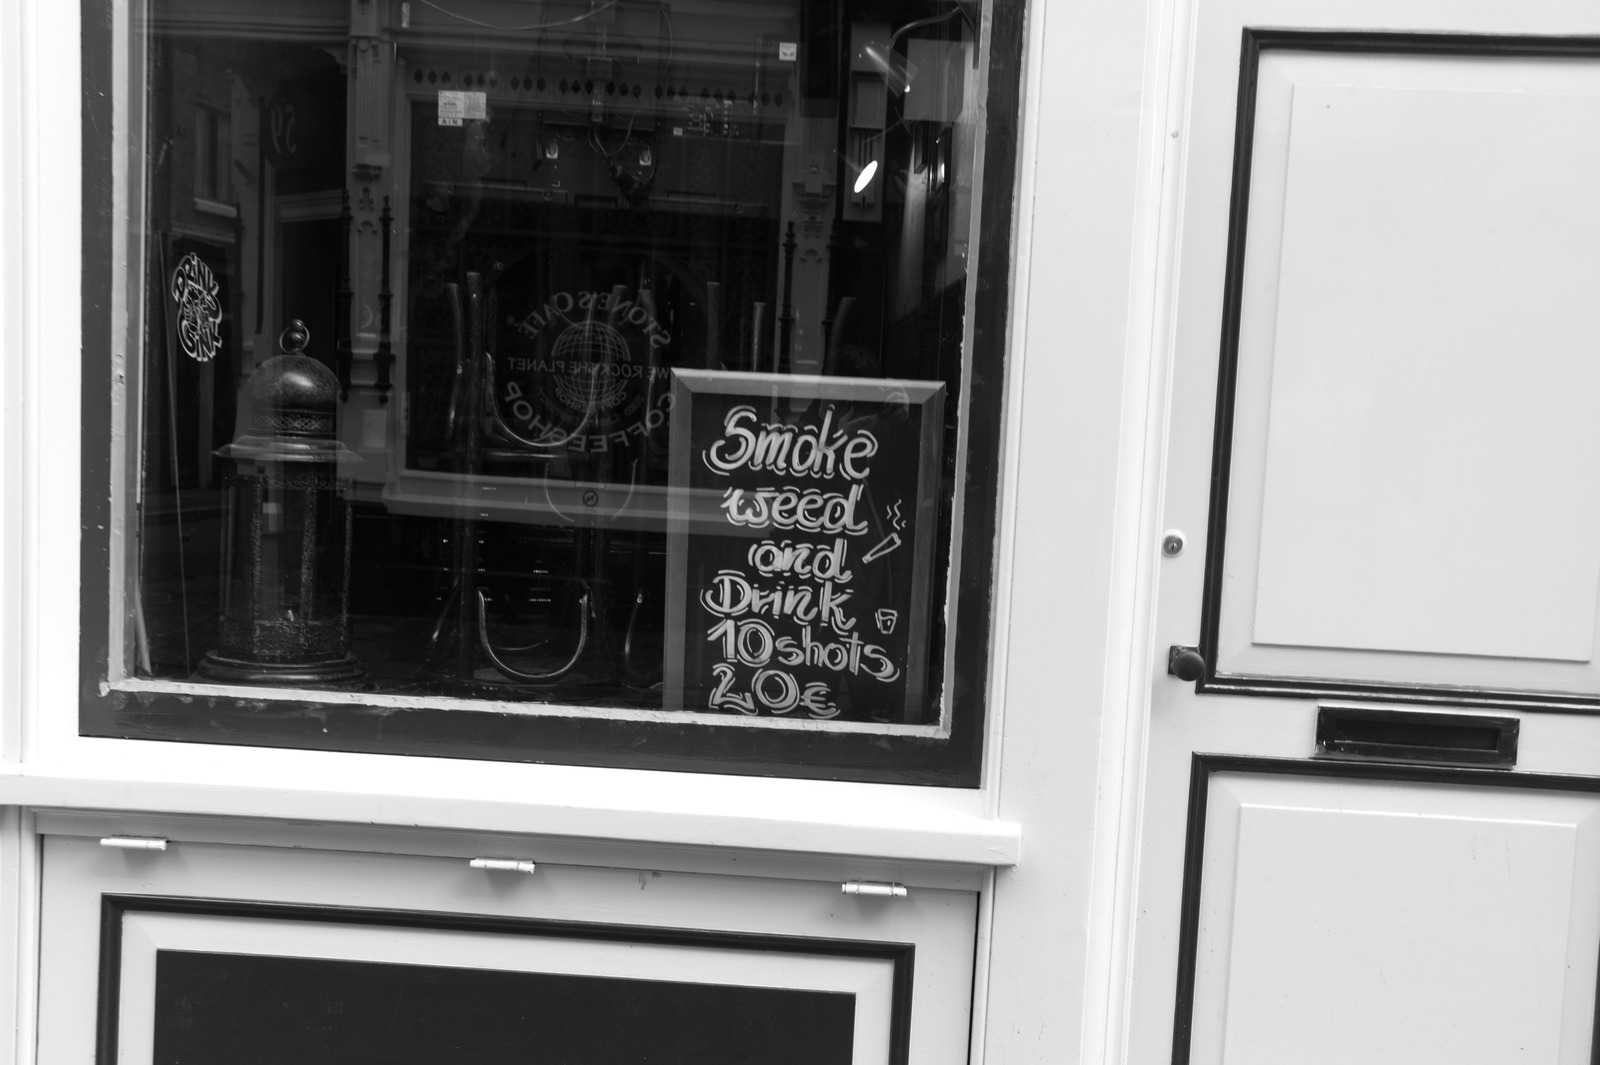 DRINK
GINK
STONES CAFE
WE ROCK THE PLANET
COFFEESHOP
Smoke
weed
and
Drink
10 shots
20€